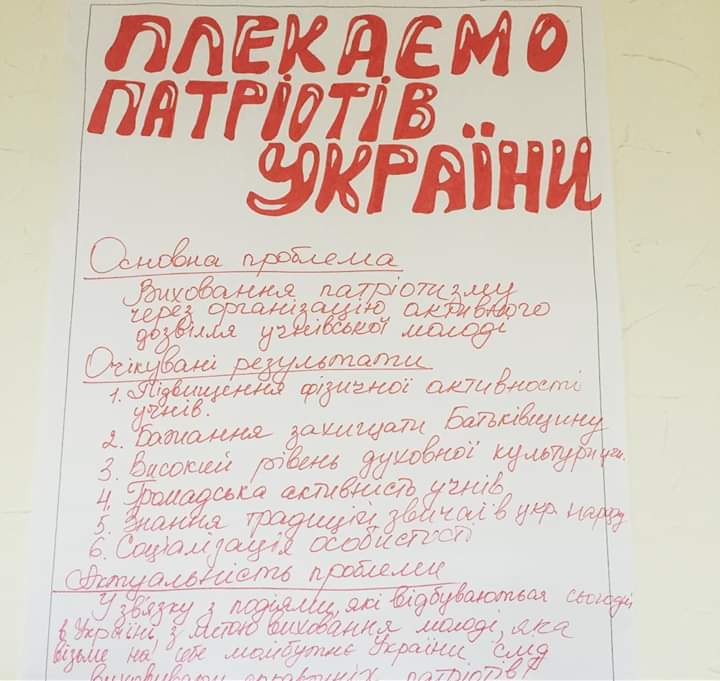 ПЛЕКАЄМО
ПАТРІОТІВ
УКРАЇНИ
Основна проблема
Виховання патріотизму
через організацію активного
дозвілля учнівської молоді
Очікувані результати
1. Підвищення фізичної активності
учнів.
2. Бажання захищати Батьківщину
3. Високий рівень духовної культури учн.
4. Громадська активність учнів
5. Знання традицій, звичаїв укр. народу
6. Соціалізація особистості
Актуальність проблеми
У зв'язку з подіями, які відбуваються сьогодні
в Україні, з метою виховання молоді, яка
візьме на себе майбутнє України слід
виховувати справжніх патріотів